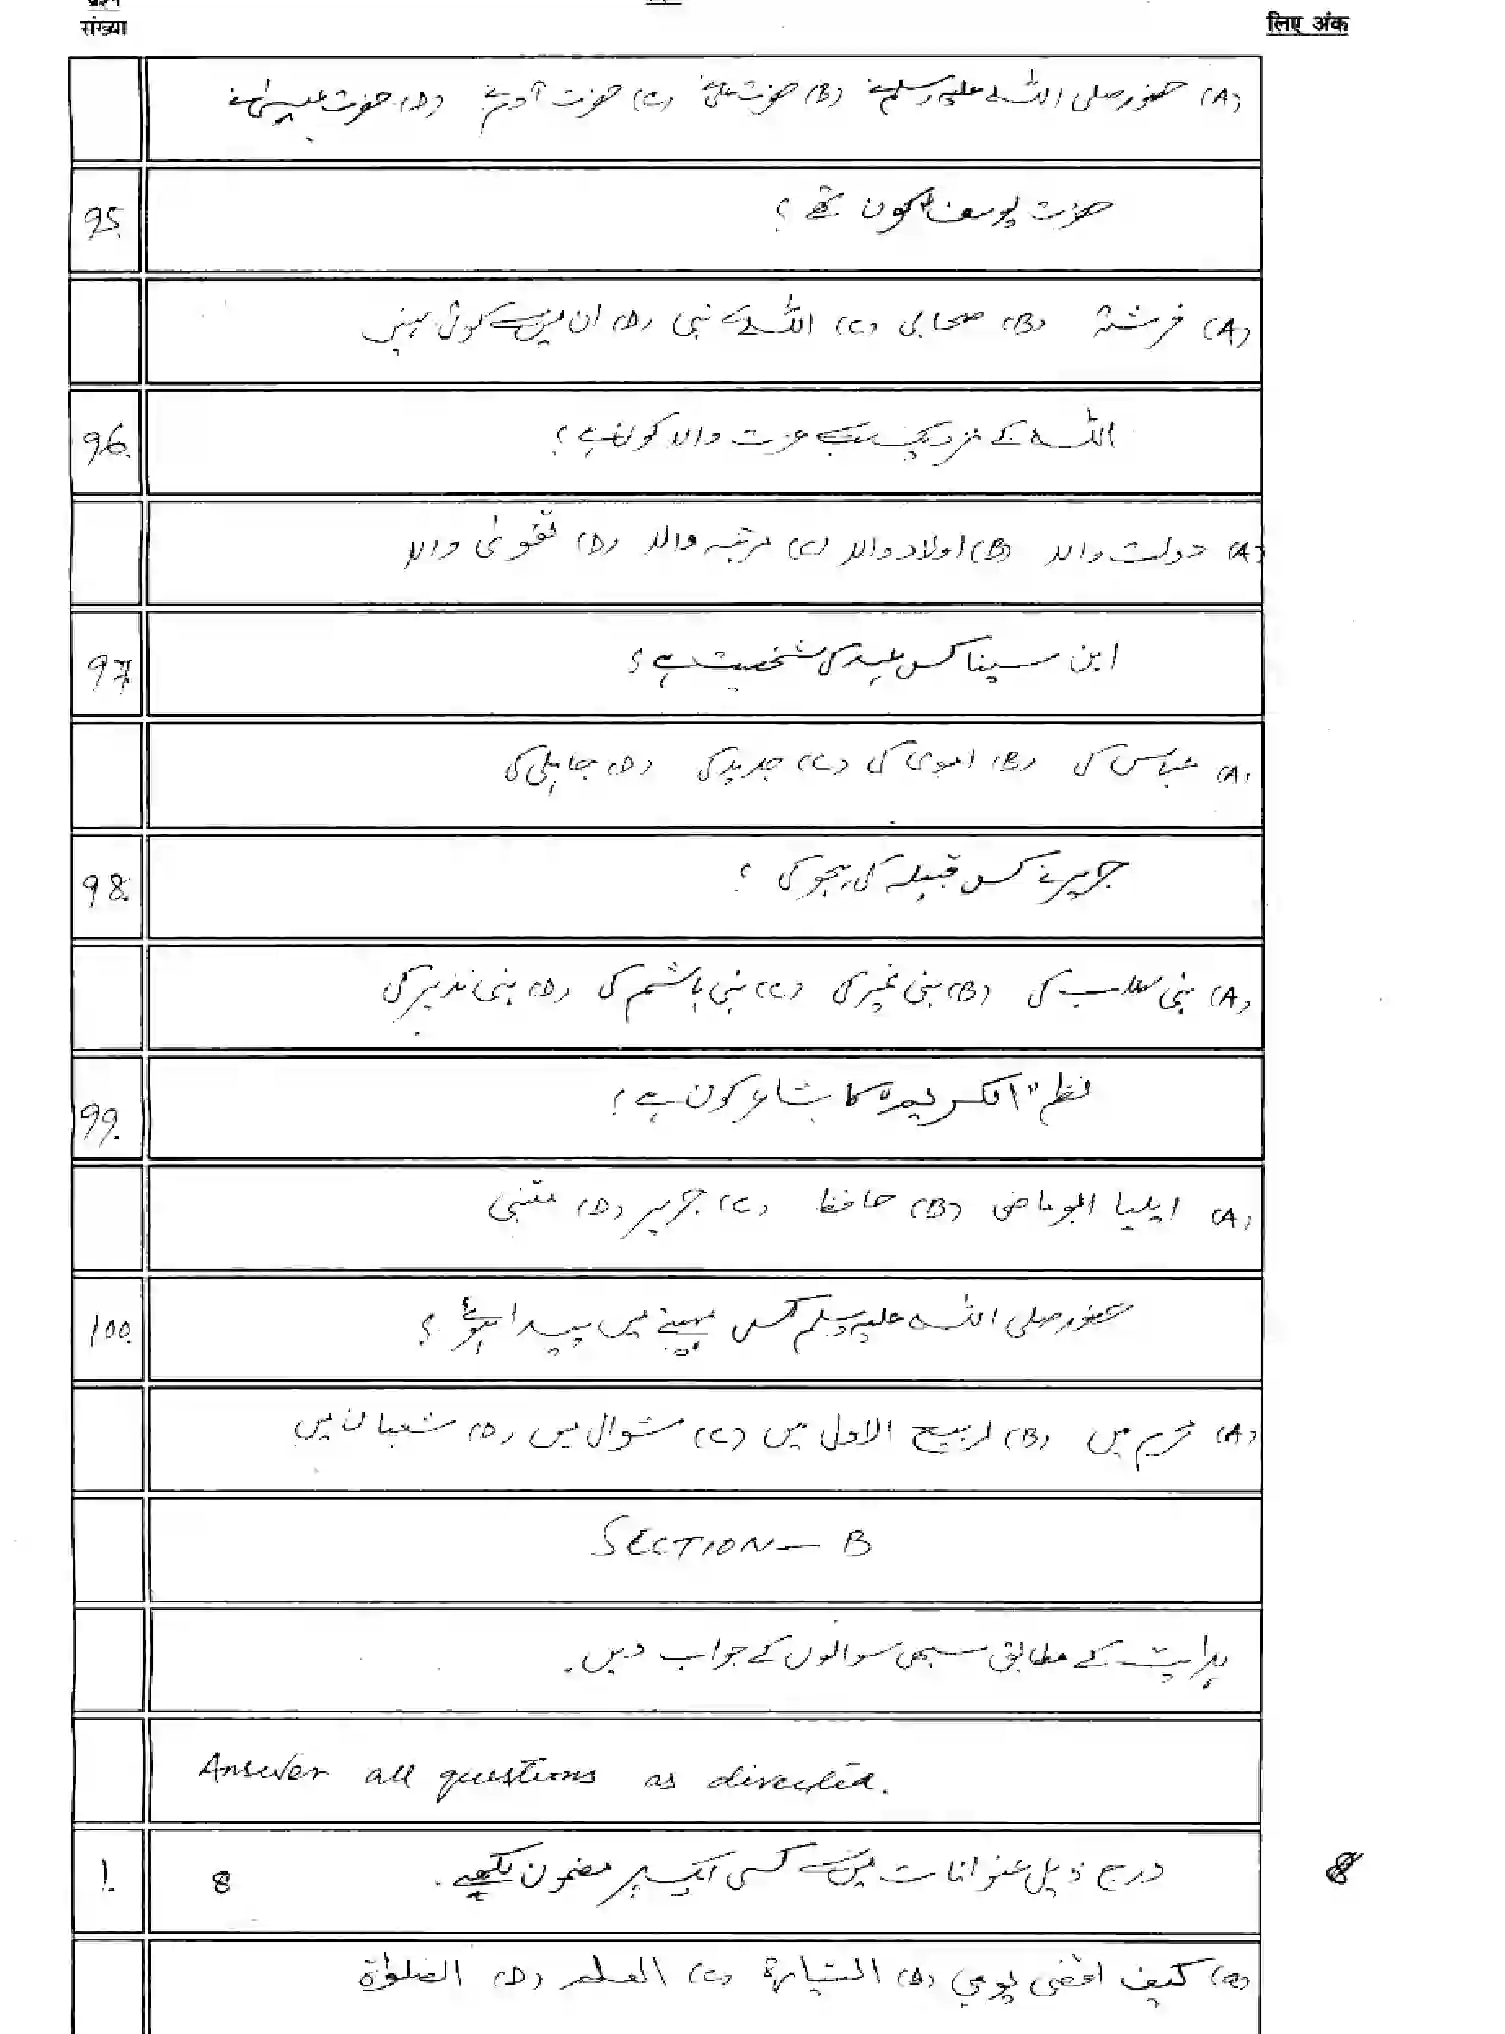 संख्या
लिए अंक
(A) حضور صلی اللہ علیہ وسلم نے (B) حضرت علیؓ نے (C) حضرت آدمؑ نے (D) حضرت عیسیٰؑ نے
95. حضرت یوسفؑ کون تھے؟
(A) فرشتہ (B) صحابی (C) اللہ کے نبی (D) ان میں سے کوئی نہیں
96. اللہ کے نزدیک سب سے عزت والا کون ہے؟
(A) دولت والا (B) اولاد والا (C) مرتبہ والا (D) تقویٰ والا
97. ابن سینا کس عہد کی شخصیت ہے؟
(A) عباسی کی (B) اموی کی (C) جدید کی (D) جاہلی کی
98. جریر نے کس قبیلہ کی ہجو کی؟
(A) بنی کلاب کی (B) بنی نمیر کی (C) بنی ہاشم کی (D) بنی نذیر کی
99. نظم " کا شاعر کون ہے؟
(A) ایلیا ابو ماضی (B) حافظ (C) جریر (D) متنبی
100. حضور صلی اللہ علیہ وسلم کس مہینے میں پیدا ہوئے؟
(A) محرم میں (B) ربیع الاول میں (C) شوال میں (D) شعبان میں
SECTION - B
ہدایت کے مطابق سبھی سوالوں کے جواب دیں۔
Answer all questions as directed.
1. درج ذیل عنوانات میں سے کسی ایک پر مضمون لکھیے۔ 8
8
(a) كيف اقضى يومي (b) السيارة (c) العلم (D) الصلوٰة